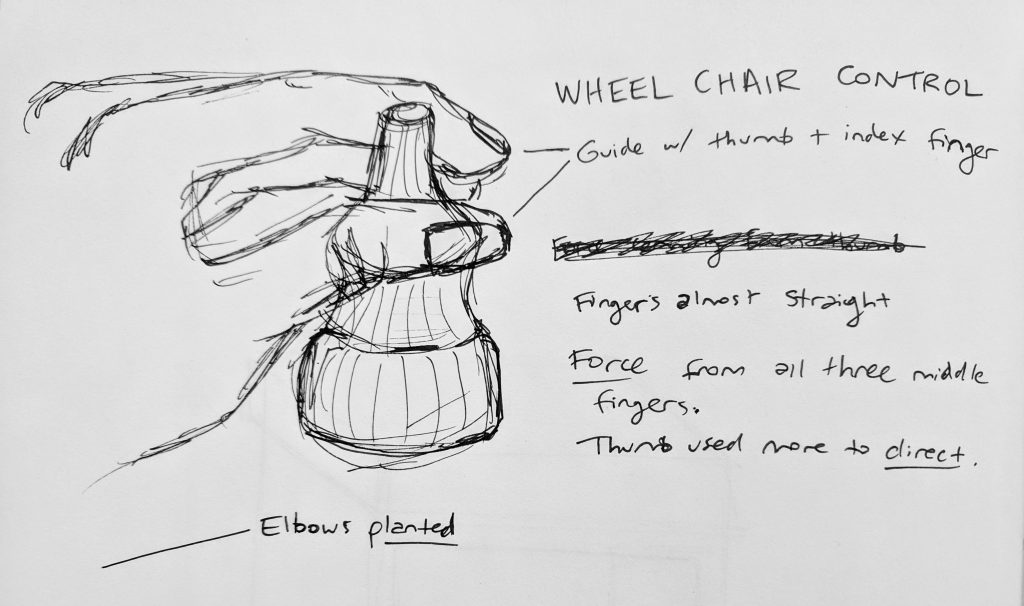 WHEEL CHAIR CONTROL
Guide w/ thumb + index finger
Finger's almost straight
Force from all three middle
fingers.
Thumb used more to direct.
Elbows planted